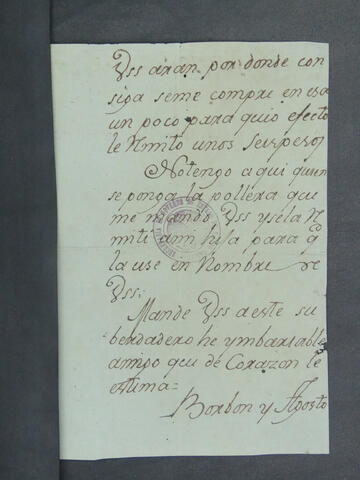 Vss aran por donde con
siga seme compre en esa
un poco para quio efecto
le Rmito unos Seis pesos
Notengo aqui quien
se ponga la pollera que
me mando Vss y sela R
miti ami hija para q
la use en Nombre de
Vss:
Mande Vss a este su
berdadero he ymbariable
amigo que de Corazon le
estima=
Borbon y Agosto